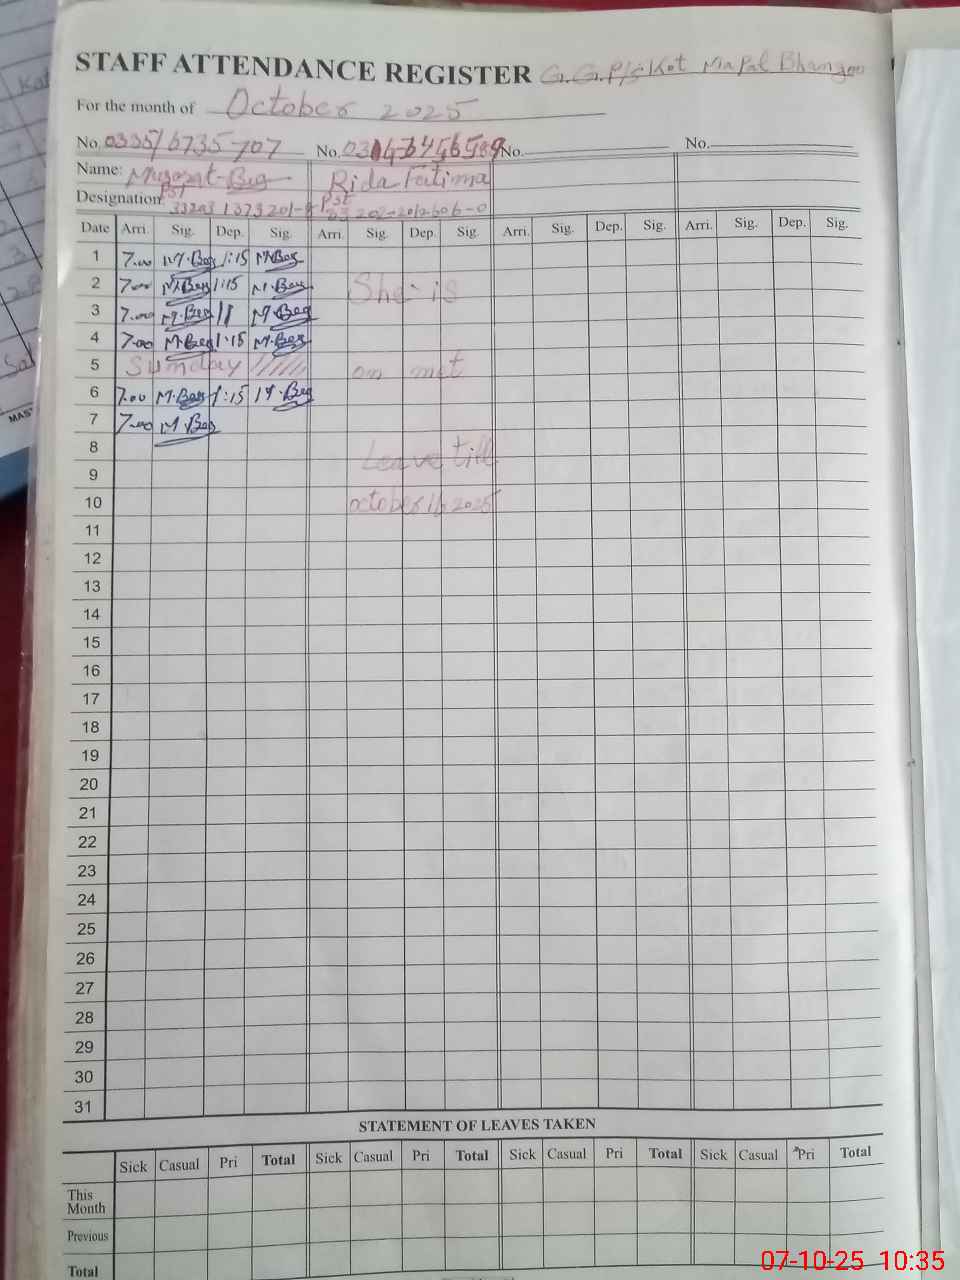 STAFF ATTENDANCE REGISTER G.G.P/S Kot Mapal
For the month of October 2025
No. 0335/6735-707 No. No. No.
Name: Beg Rida Fatima
Designation: PST PSt
Date Arri. Sig. Dep. Sig. Arri. Sig. Dep. Sig. Arri. Sig. Dep. Sig. Arri. Sig. Dep. Sig.
1 7.00 M.Beg 1:15 M.Beg
2 7.00 M.Beg 1:15 M.Beg She is
3 7.00 M.Beg 11 M.Beg
4 7.00 M.Beg 1:15 M.Beg
5 Sunday ////// on met
6 7.00 M.Beg 1:15 M.Beg
7 7.00 M.Beg
8 Leave till
9
10 october 16 2025
11
12
13
14
15
16
17
18
19
20
21
22
23
24
25
26
27
28
29
30
31
STATEMENT OF LEAVES TAKEN
Sick Casual Pri Total Sick Casual Pri Total Sick Casual Pri Total Sick Casual Pri Total
This Month
Previous
Total
07-10-25 10:35